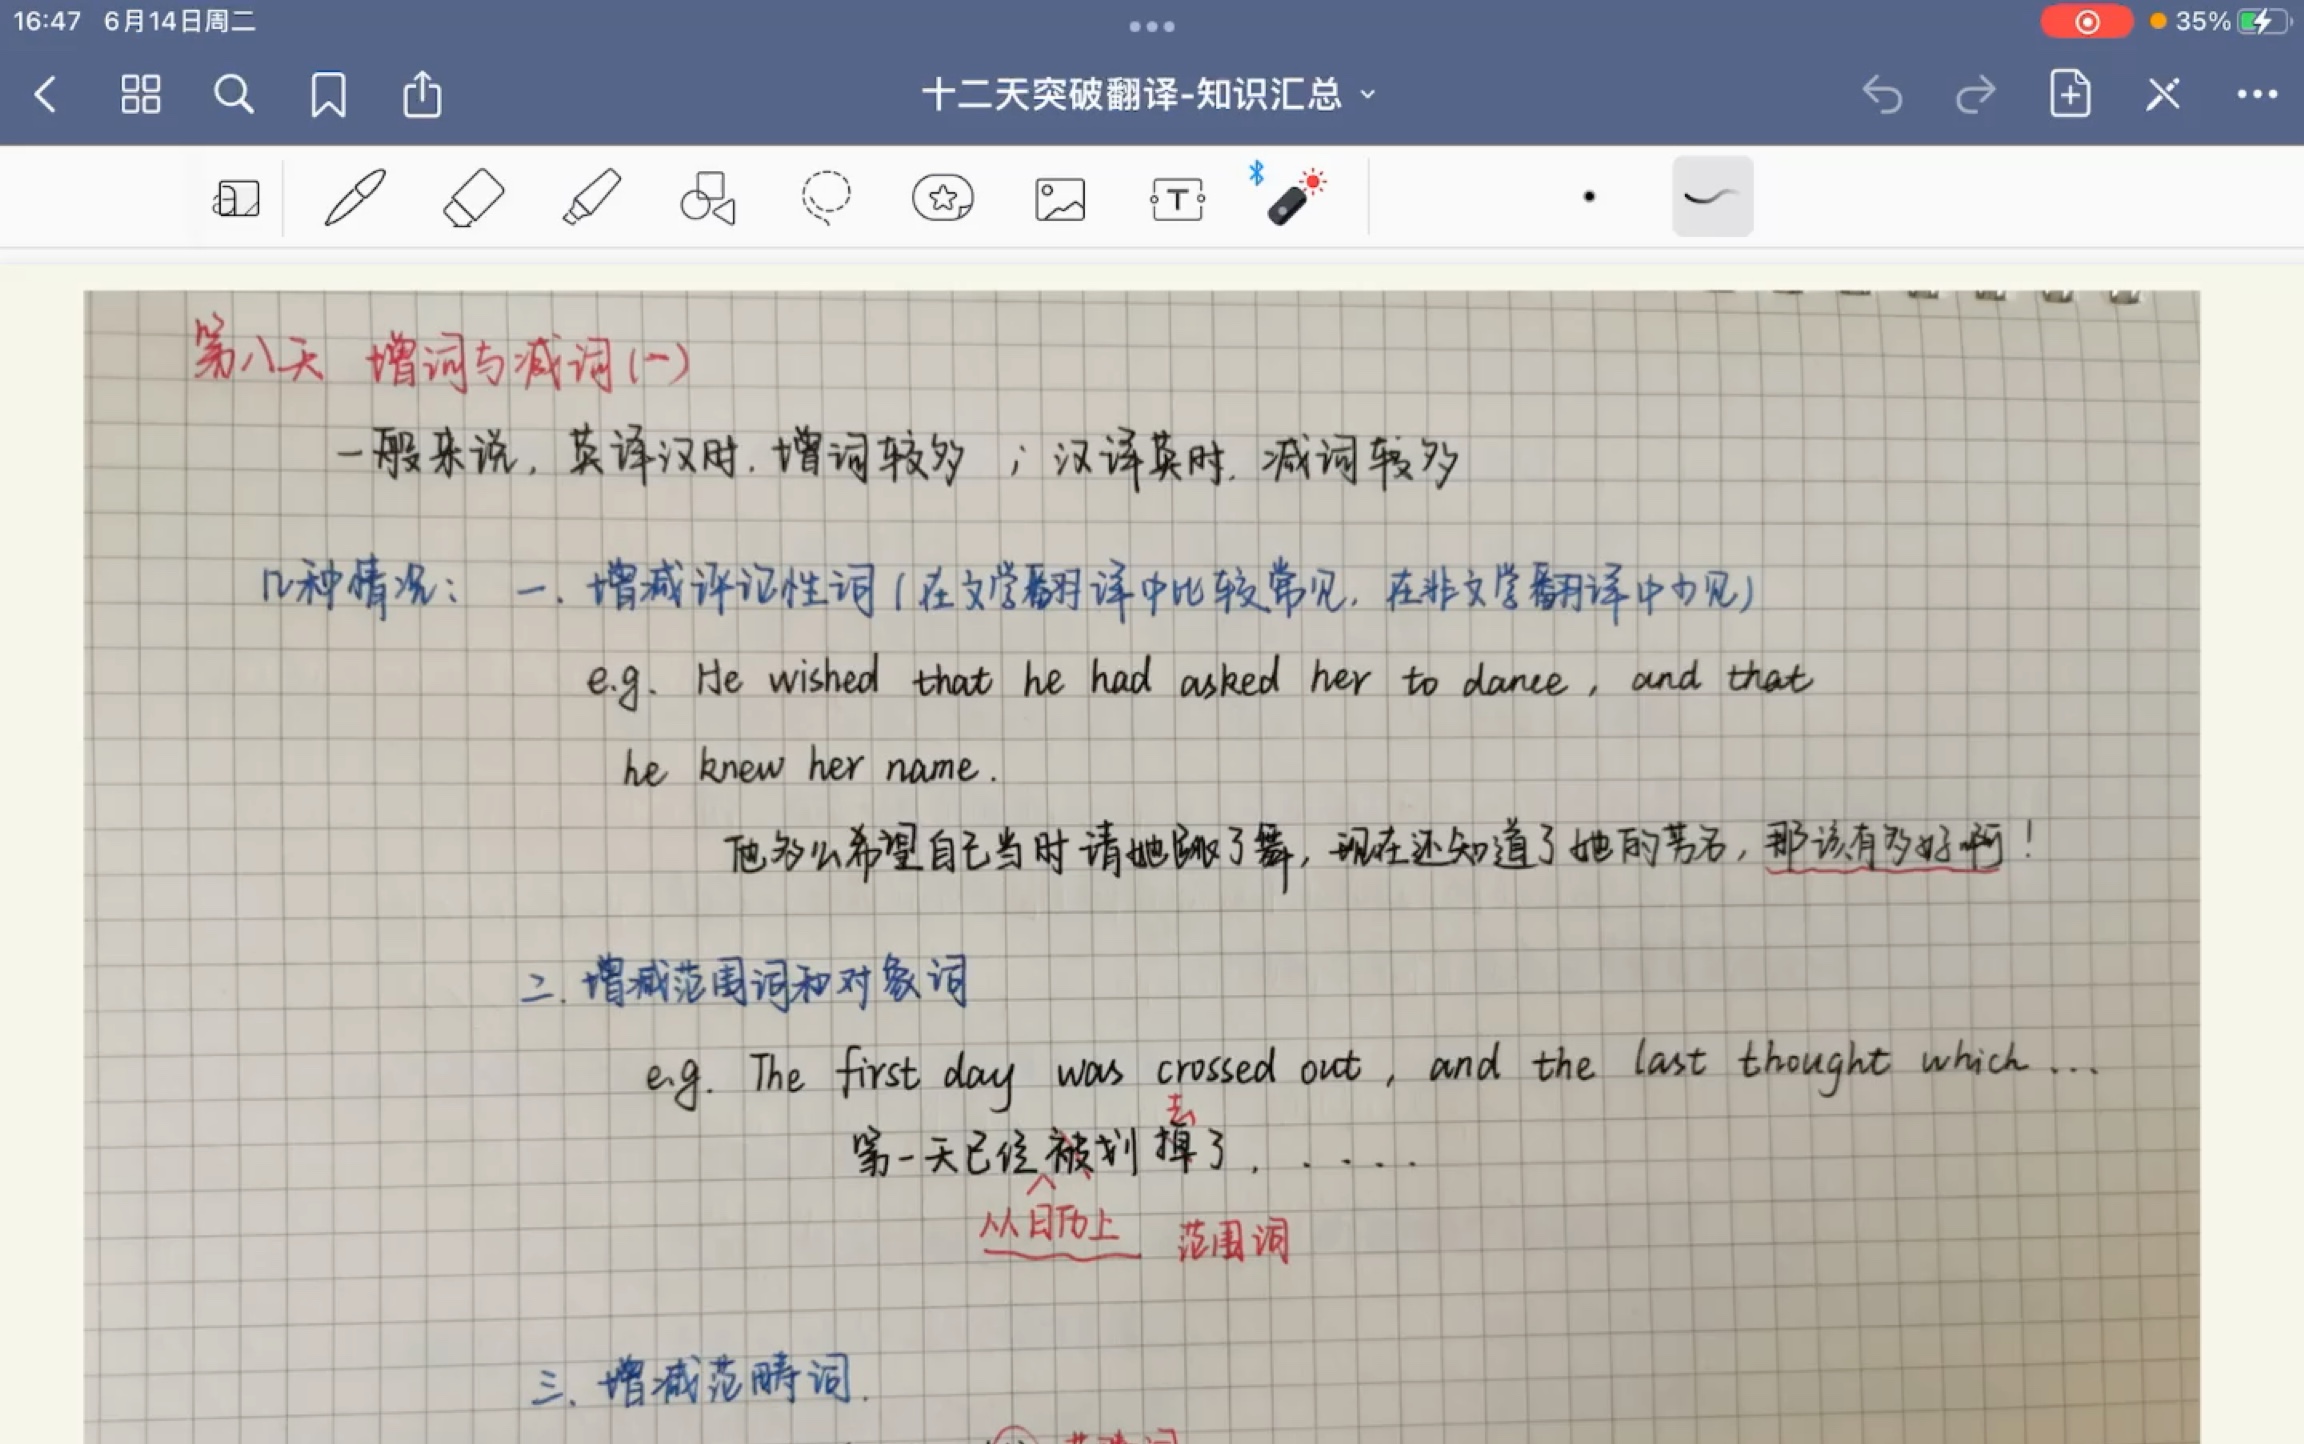 16:47 6月14日周二
35%
十二天突破翻译-知识汇总
T
第八天 增词与减词(一)
一般来说,英译汉时,增词较多;汉译英时,减词较多
几种情况: 一. 增减评论性词(在文学翻译中比较常见,在非文学翻译中少见)
e.g. He wished that he had asked her to dance, and that
he knew her name.
他多么希望自己当时请她跳了舞,现在还知道了她的芳名,那该有多好啊!
二. 增减范围词和对象词
e.g. The first day was crossed out, and the last thought which...
去
第一天已经被划掉了, .....
从日历上 范围词
三. 增减范畴词.